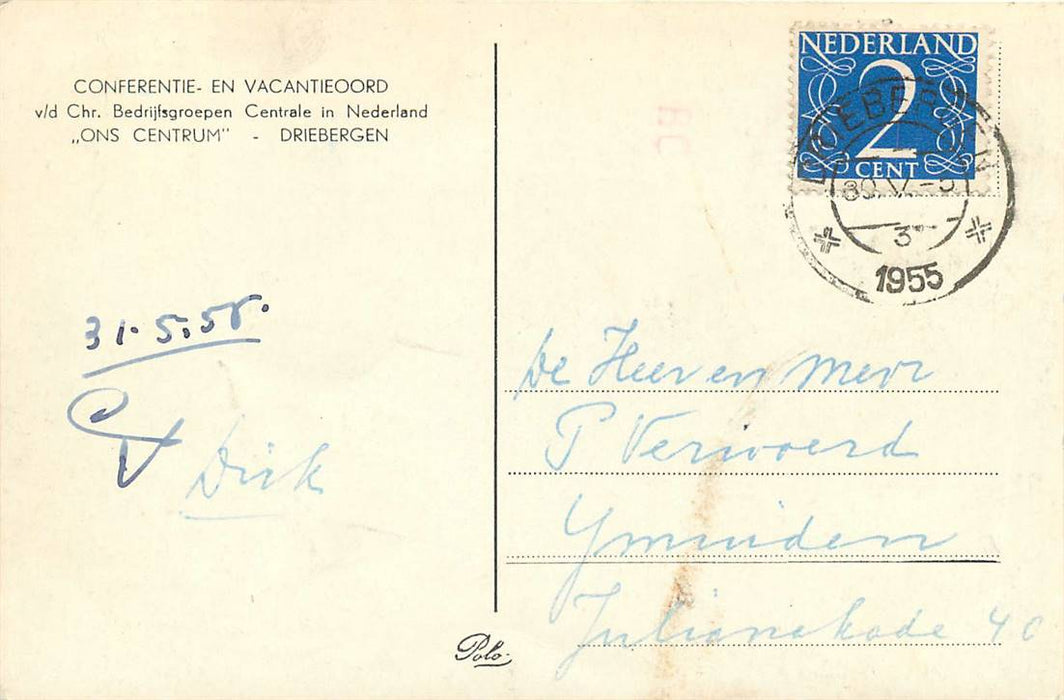 CONFERENTIE- EN VACANTIEOORD
v/d Chr. Bedrijfsgroepen Centrale in Nederland
„ONS CENTRUM" - DRIEBERGEN
NEDERLAND
2
CENT
DRIEBERGEN
30.V.-5
3
1955
31.5.55.
Dirk
De Heer en Mevr
P Verwoerd
Ymuiden
Julianakade 40
Polo